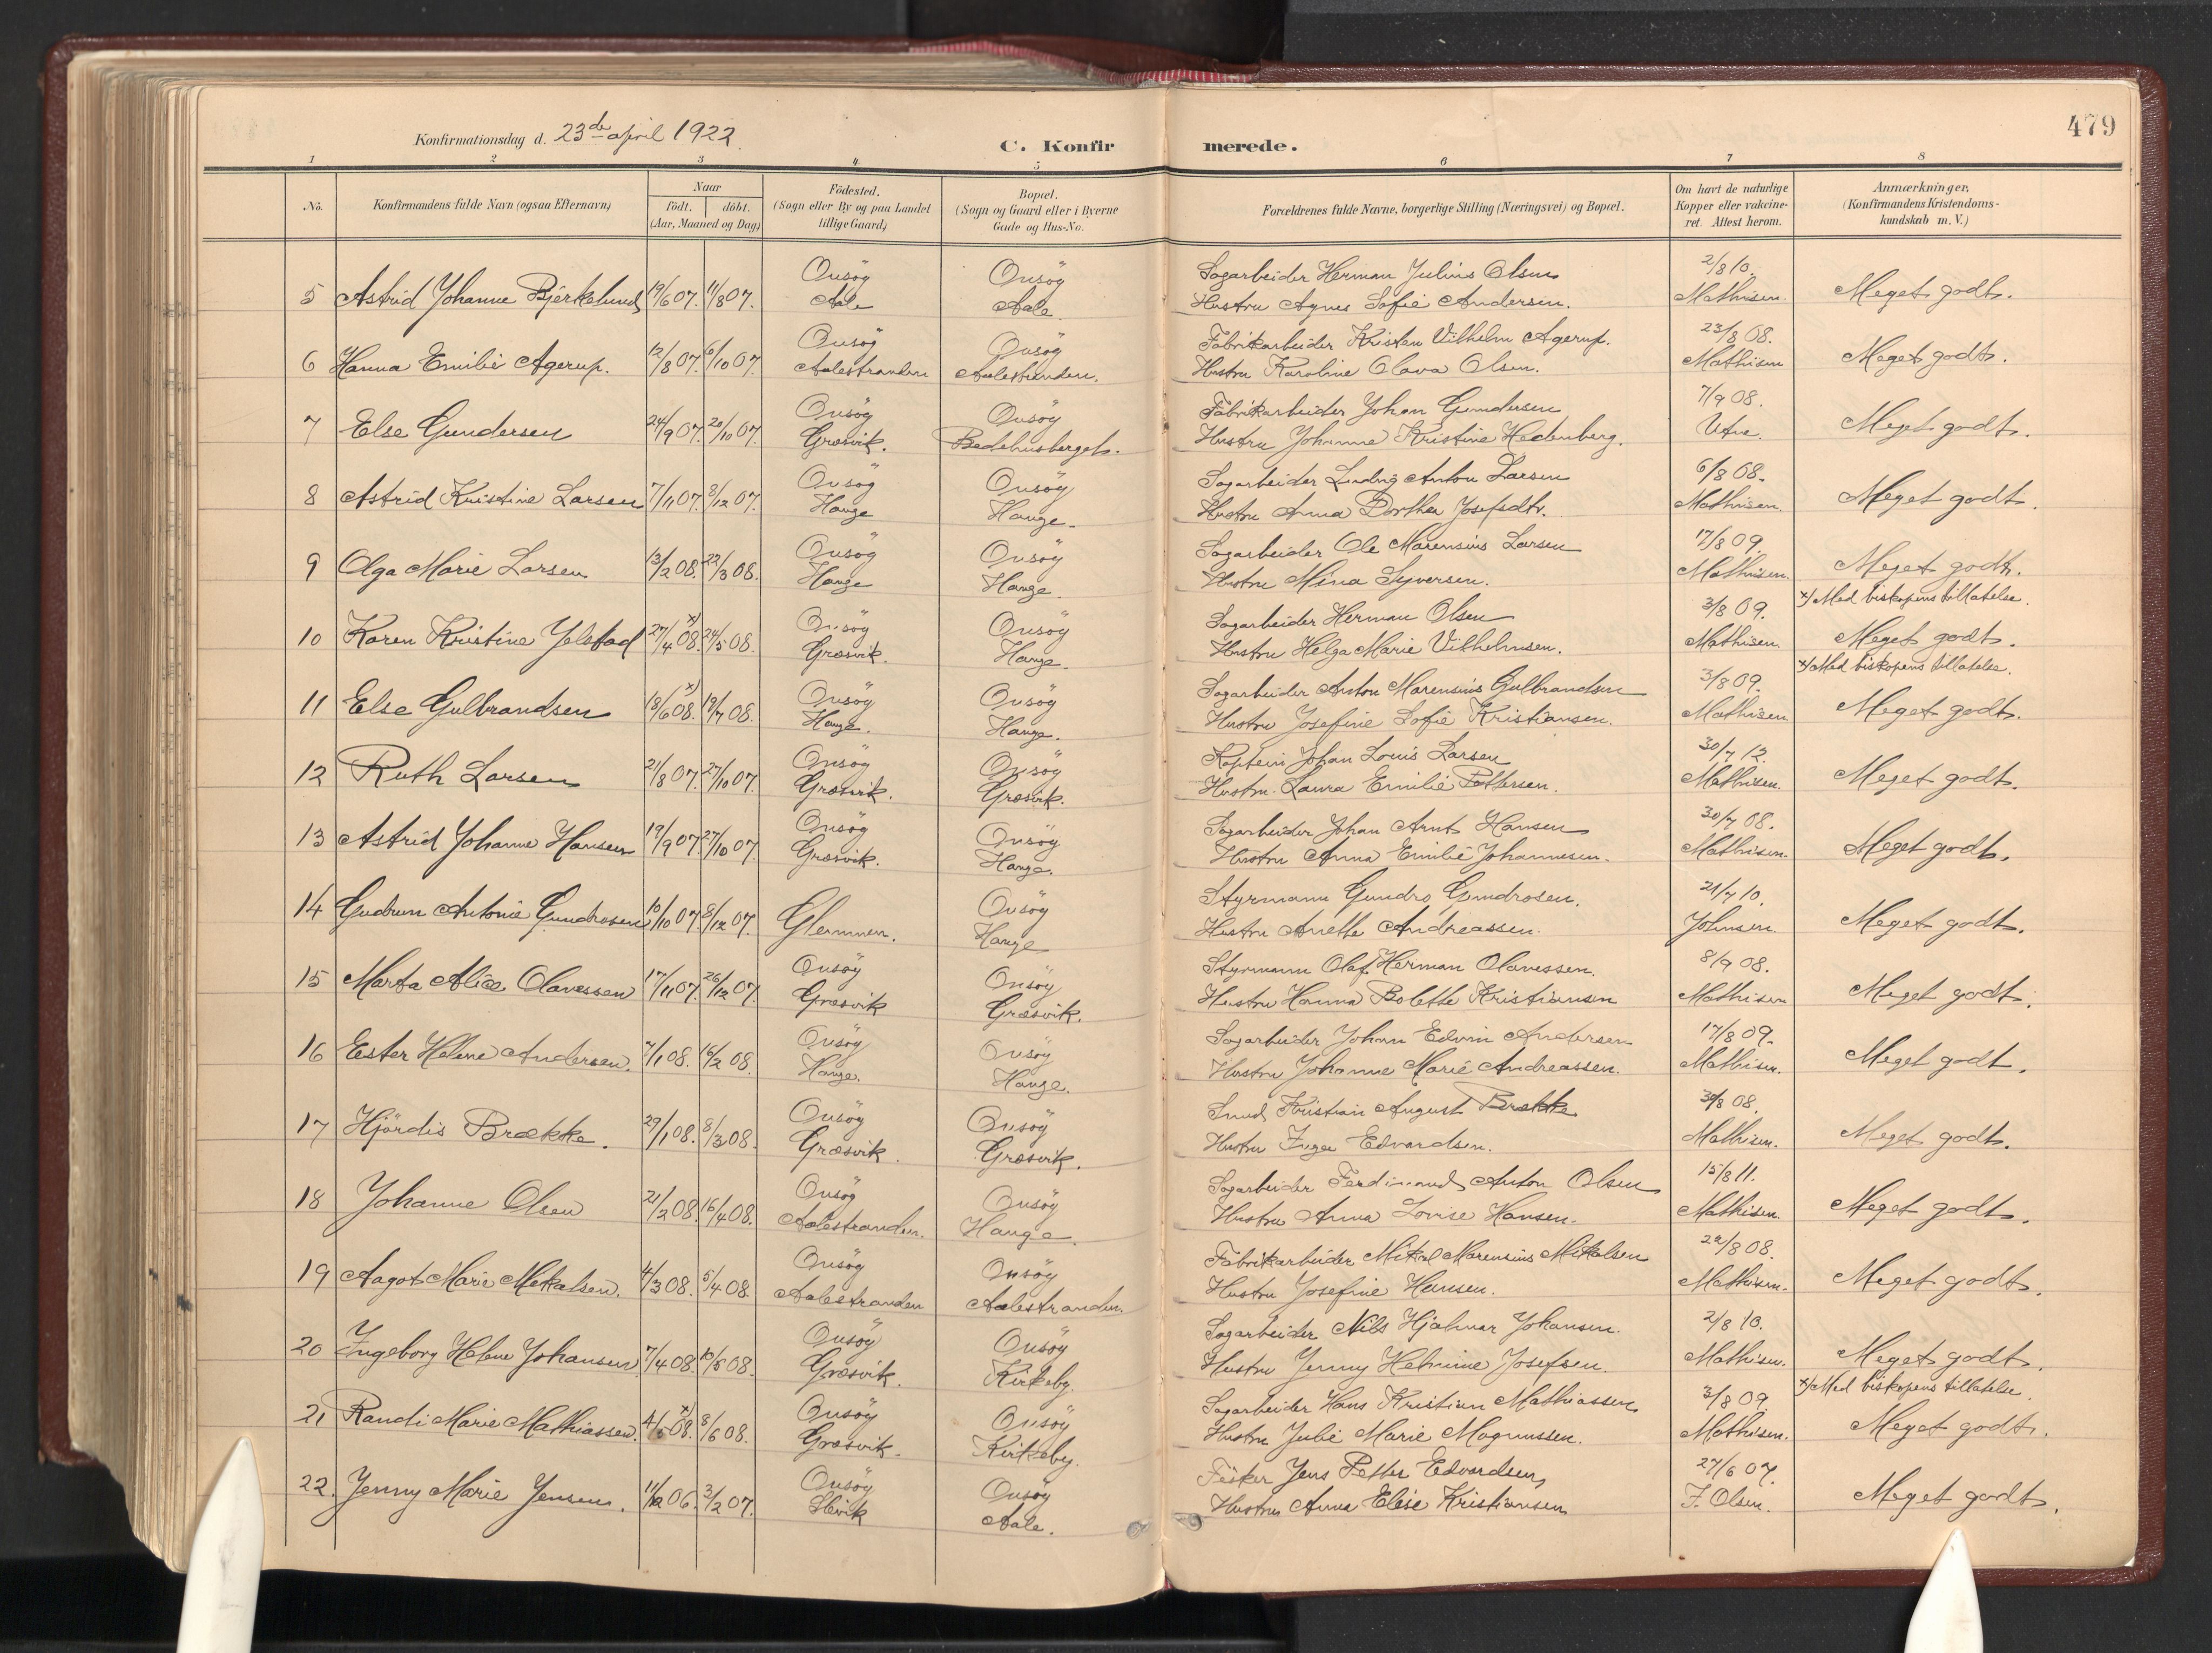 479
Konfirmationsdag d. 23de april 1922.
C. Konfirmerede.
1 2 3 4 5 6 7 8
No.
Konfirmandens fulde Navn (ogsaa Efternavn)
Naar
födt. döbt.
(Aar, Maaned og Dag)
Födested.
(Sogn eller By og paa Landet
tillige Gaard)
Bopæl.
(Sogn og Gaard eller i Byerne
Gade og Hus-No.
Forældrenes fulde Navne, borgerlige Stilling (Næringsvei) og Bopæl.
Om havt de naturlige
Kopper eller vakcine-
ret. Attest herom.
Anmærkninger.
(Konfirmandens Kristendoms-
kundskab m. V.)
Onsöy Onsöy Sagarbeider Herman Julius Olsen 2/8 10.
5 Astrid Johanne Bjerkelund 19/6 07. 11/8 07. Aale Aale. Hustru Agnes Sofie Andersen. Mathisen. Meget godt.
Onsöy Onsöy Fabrikarbeider Kristen Vilhelm Agerup. 23/8 08.
6 Hanna Emilie Agerup. 12/8 07. 6/10 07. Aalestranden Aalestranden. Hustru Karoline Olava Olsen. Mathisen Meget godt.
Onsöy Onsöy Fabrikarbeider Johan Gundersen 7/9 08.
7 Else Gundersen 24/9 07. 20/10 07. Græsvik. Bedehusberget. Hustru Johanne Kristine Hedenberg. Utne. Meget godt.
Onsöy Onsöy Sagarbeider Ludvig Anton Larsen 6/8 08.
8 Astrid Kristine Larsen 7/11 07. 8/12 07. Hauge Hauge. Hustru Anna Dorthea Josefsdtr. Mathisen. Meget godt.
Onsöy Onsöy Sagarbeider Ole Marensius Larsen 17/8 09.
9 Olga Marie Larsen 13/2 08. 22/3 08. Hauge Hauge. Hustru Mina Syversen. Mathisen. Meget godt.
Onsöy Onsöy Sagarbeider Herman Olsen 3/8 09. x/ Med biskopens tillatelse.
10 Karen Kristine Jelstad 27/4 08. x) 24/5 08. Græsvik. Hauge. Hustru Helga Marie Vilhelmsen. Mathisen Meget godt.
Onsöy Onsöy Sagarbeider Anton Marensius Gulbrandsen 3/8 09. x/ Med biskopens tillatelse.
11 Else Gulbrandsen 18/6 08. x) 19/7 08. Hauge. Hauge. Hustru Josefine Sofie Kristiansen. Mathisen Meget godt.
Onsöy Onsöy Kaptein Johan Louis Larsen 30/7 12.
12 Ruth Larsen 21/8 07. 27/10 07. Græsvik. Græsvik. Hustru Laura Emilie Pettersen. Mathisen. Meget godt.
Onsöy Onsöy Sagarbeider Johan Arnt Hansen 30/7 08.
13 Astrid Johanne Hansen 19/9 07. 27/10 07. Græsvik. Hauge. Hustru Anna Emilie Johannesen. Mathisen. Meget godt.
Onsöy Styrmann Gundro Gundrosen. 21/7 10.
14 Gudrun Antonie Gundrosen 10/10 07. 8/12 07. Glemmen. Hauge Hustru Anette Andreassen. Johnsen. Meget godt.
Onsöy Onsöy Styrmann Olaf Herman Olavessen. 8/9 08.
15 Marta Alice Olavessen 17/11 07. 26/12 07. Græsvik Græsvik. Hustru Hanna Bolette Kristiansen Mathisen Meget godt.
Onsöy Onsöy Sagarbeider Johan Edvin Andersen 17/8 09.
16 Ester Helene Andersen. 7/1 08. 16/2 08. Hauge. Hauge. Hustru Johanne Marie Andreassen. Mathisen. Meget godt.
Onsöy Onsöy Smed Kristian August Brække 30/8 08.
17 Hjördis Brække. 29/1 08. 8/3 08. Græsvik. Græsvik. Hustru Inga Edvardsen. Mathisen. Meget godt.
Onsöy Onsöy Sagarbeider Ferdinand Anton Olsen 15/8 11.
18 Johanne Olsen 21/2 08. 16/4 08. Aalestranden. Hauge. Hustru Anna Lovise Hansen. Mathisen. Meget godt.
Onsöy Onsöy Fabrikarbeider Mikal Marensius Mikalsen 22/8 08.
19 Aagot Marie Mikalsen. 4/3 08. 5/4 08 Aalestranden Aalestranden. Hustru Josefine Hansen. Mathisen. Meget godt.
Onsöy Onsöy Sagarbeider Nils Hjalmar Johansen. 2/8 10.
20 Ingeborg Helene Johansen 7/4 08. 10/5 08. Græsvik. Kirkeby. Hustru Jenny Helmine Josefsen. Mathisen. Meget godt.
Onsöy Onsöy Sagarbeider Hans Kristian Mathiassen 3/8 09. x/ Med biskopens tillatelse.
21 Randi Marie Mathiassen. 4/5 08. x) 8/6 08. Græsvik. Kirkeby. Hustru Julie Marie Magnussen. Mathisen. Meget godt.
Onsöy Onsöy Fisker Jens Petter Edvardsen 27/6 07.
22. Jenny Marie Jensen. 11/12 06. 3/2 07. Slevik Aale. Hustru Anna Elise Kristiansen F. Olsen. Meget godt.